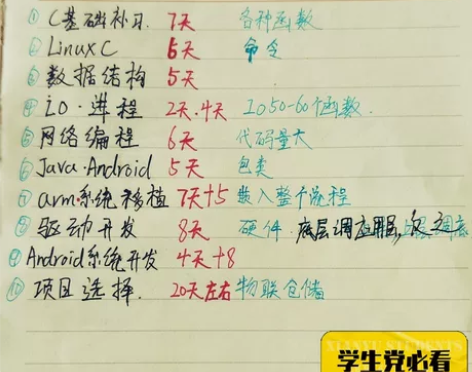 ① C基础补习. 7天 各种函数
② LinuxC 6天 命令
③ 数据结构 5天
④ io·进程 2天.4天 IO50-60个函数.
⑤ 网络编程 6天 代码量大
⑥ Java·Android 5天 包类
⑦ arm·系统移植 7天+5 嵌入整个流程
⑧ 驱动开发 8天 硬件·底层调应用层,
⑨ Android系统开发 4天+8
⑩ 项目选择. 20天左右 物联仓储
XIANYU STUDENTS
学生党必看